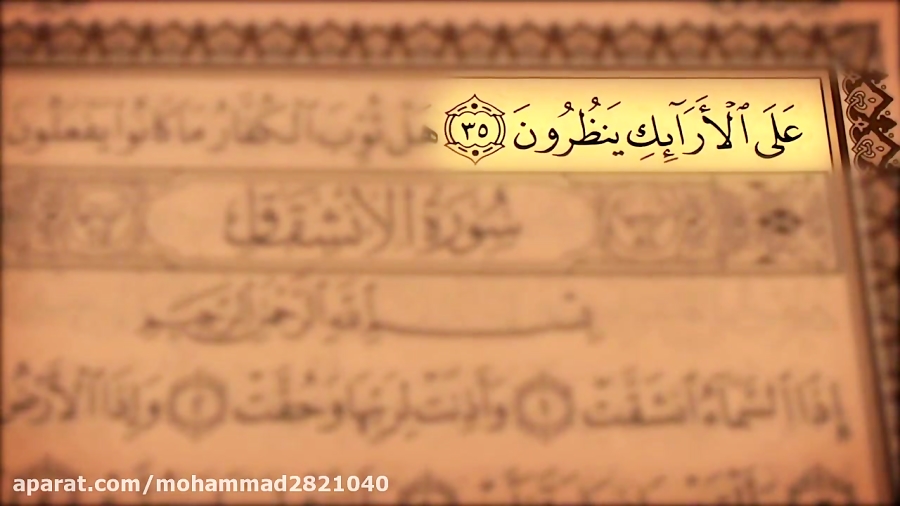 عَلَى ٱلْأَرَآئِكِ يَنظُرُونَ ٣٥ هَلْ ثُوِّبَ ٱلْكُفَّارُ مَا كَانُوا۟ يَفْعَلُونَ
سُورَةُ الانشِقَاقِ
بِسْمِ ٱللَّهِ ٱلرَّحْمَٰنِ ٱلرَّحِيمِ
إِذَا ٱلسَّمَآءُ ٱنشَقَّتْ ١ وَأَذِنَتْ لِرَبِّهَا وَحُقَّتْ ٢ وَإِذَا ٱلْأَرْضُ
aparat.com/mohammad2821040